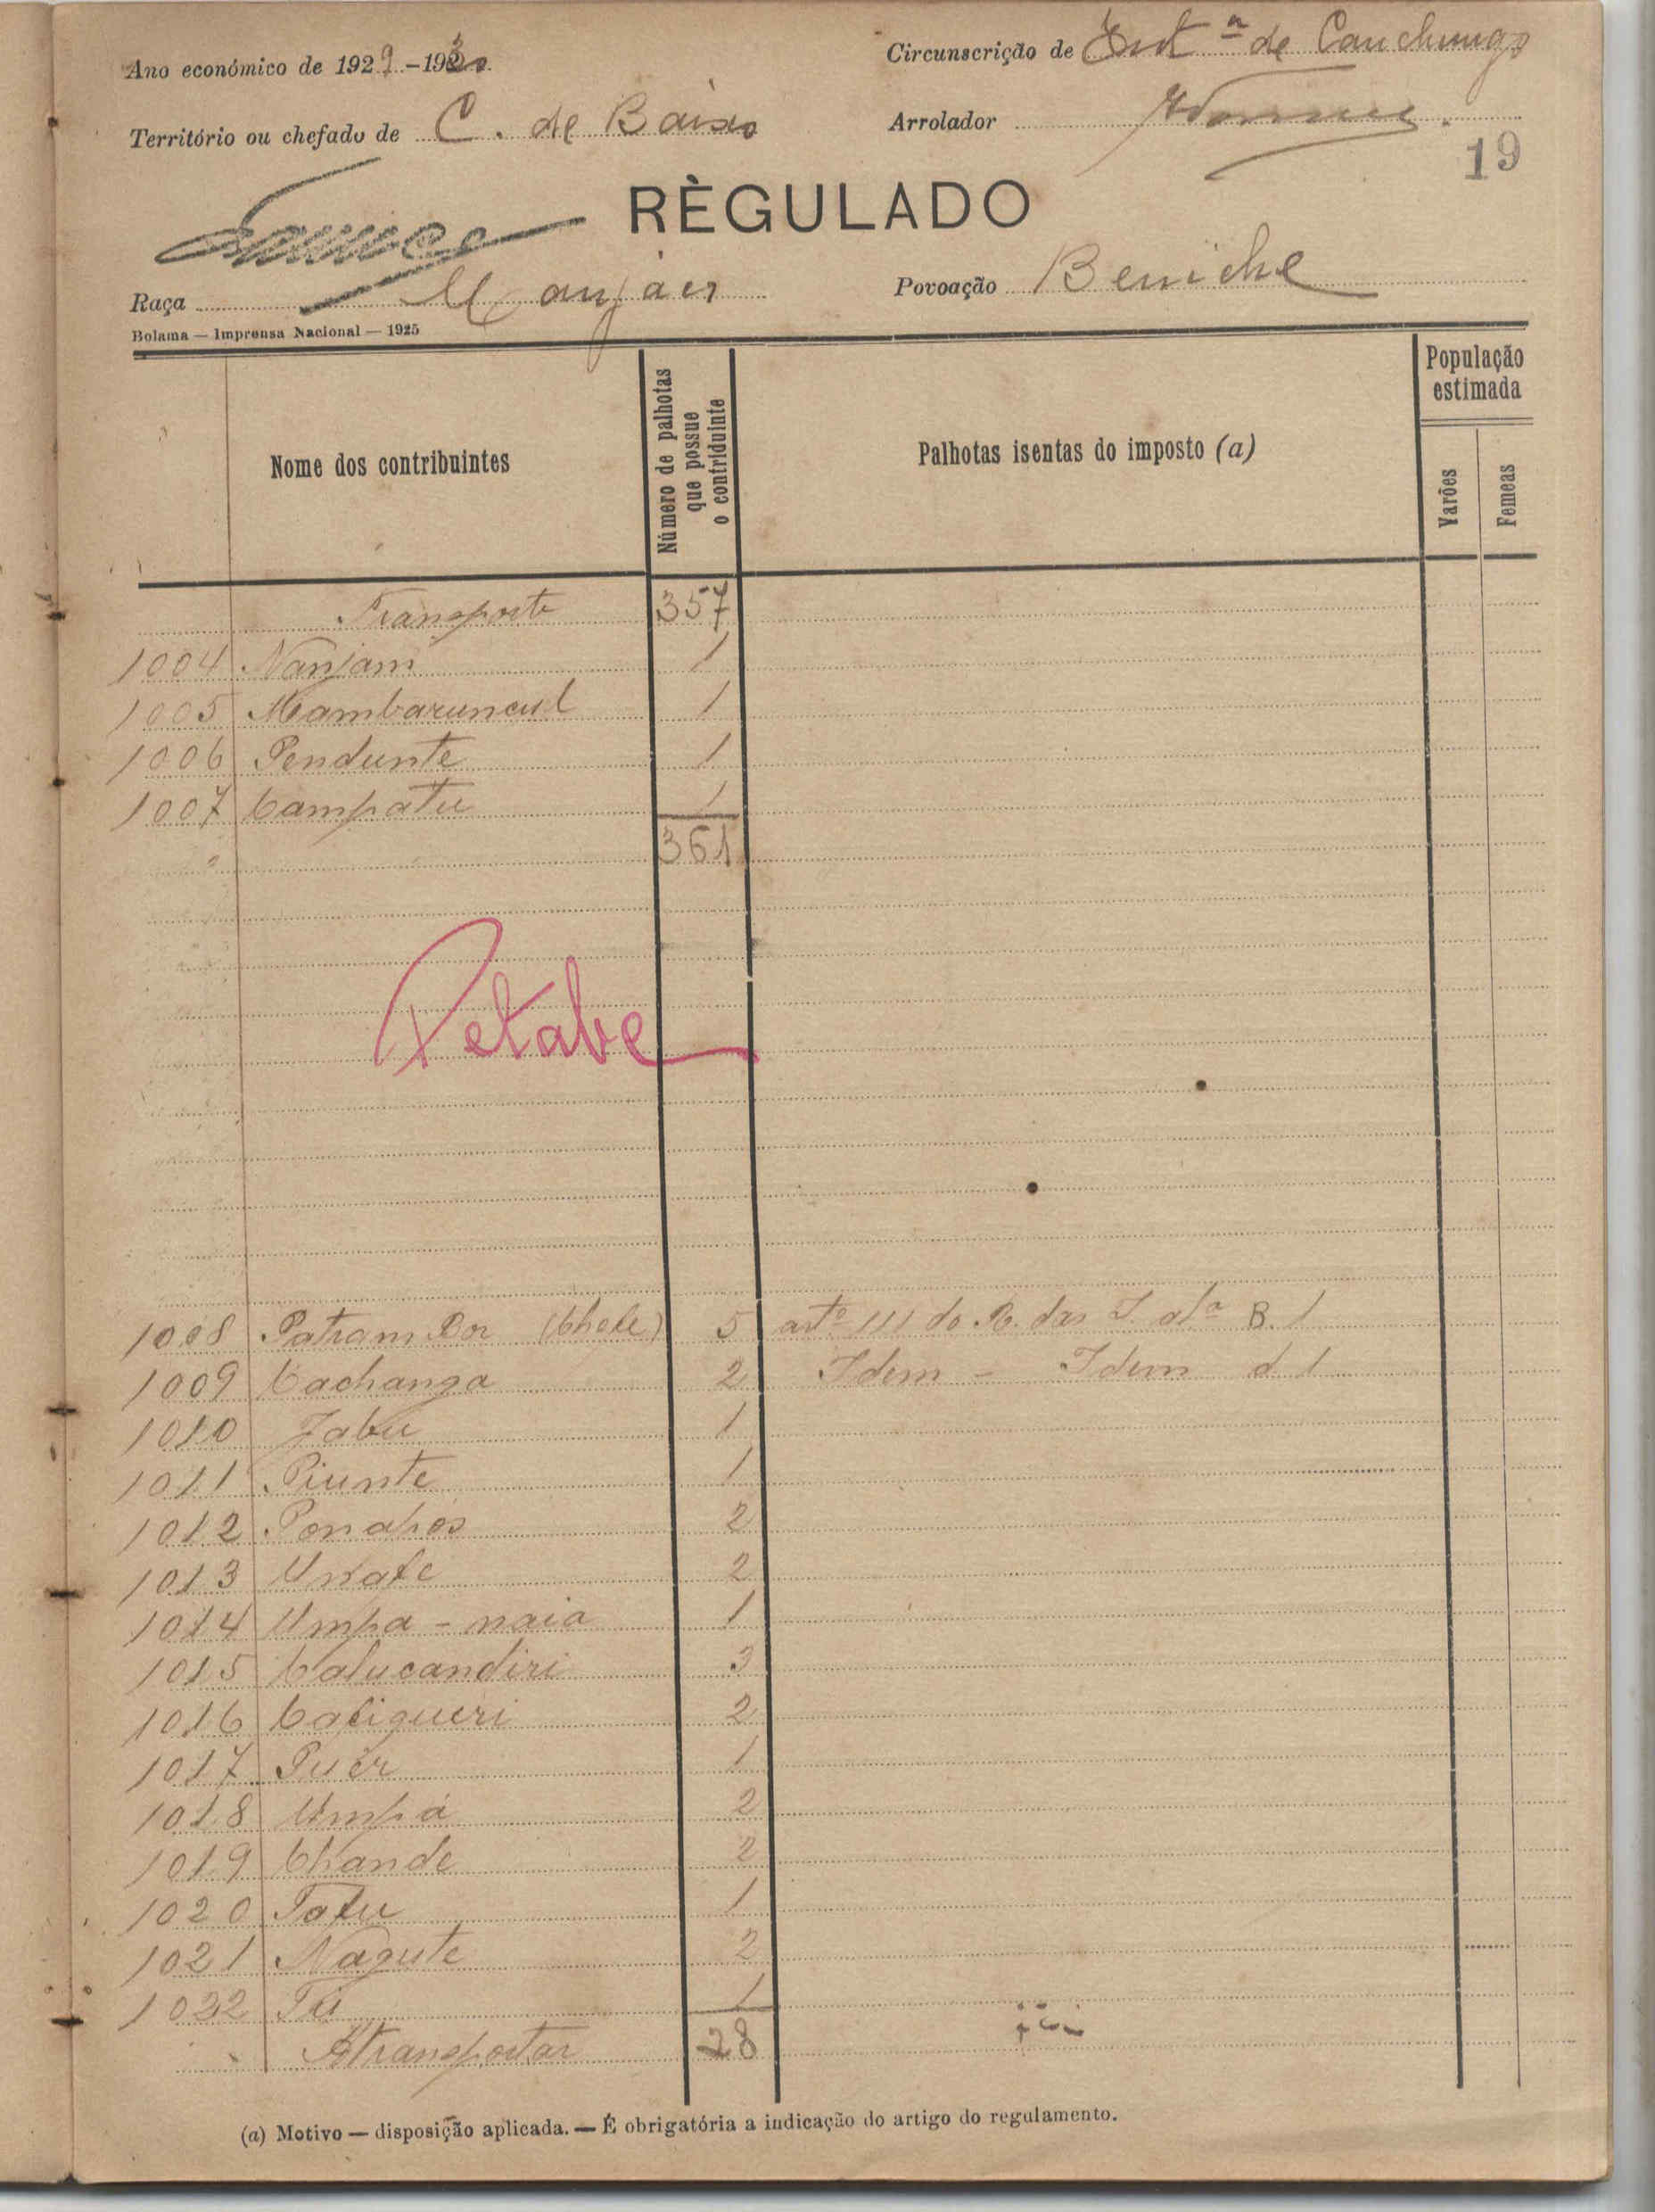 Ano económico de 1929-1930
Circunscrição de de Canchungo
Território ou chefado de C. de Baixo
Arrolador
19
RÈGULADO
Raça Manjaca
Povoação Beniche
Bolama — Imprensa Nacional — 1925
Nome dos contribuintes
Número de palhotas que possue o contriduinte
Palhotas isentas do imposto (a)
População estimada
Varões
Femeas
Transporte 357
1004 Nanjam 1
1005 Mambaruncul 1
1006 Pendunte 1
1007 Campatu 1
361
Petabe
1008 Patram Dor (Chefe) 5 artº 111 do R. das I. alª B. 1
1009 Cachanga 2 Idem - Idem d. 1
1010 Jabu 1
1011 Piunte 1
1012 Ponapós 2
1013 Unate 2
1014 Umpa - naia 1
1015 Calucandiri 3
1016 Catigueri 2
1017 Puér 1
1018 Umpá 2
1019 Chande 2
1020 Tatu 1
1021 Nagute 2
1022 1
A transportar 28
(a) Motivo — disposição aplicada. — É obrigatória a indicação do artigo do regulamento.